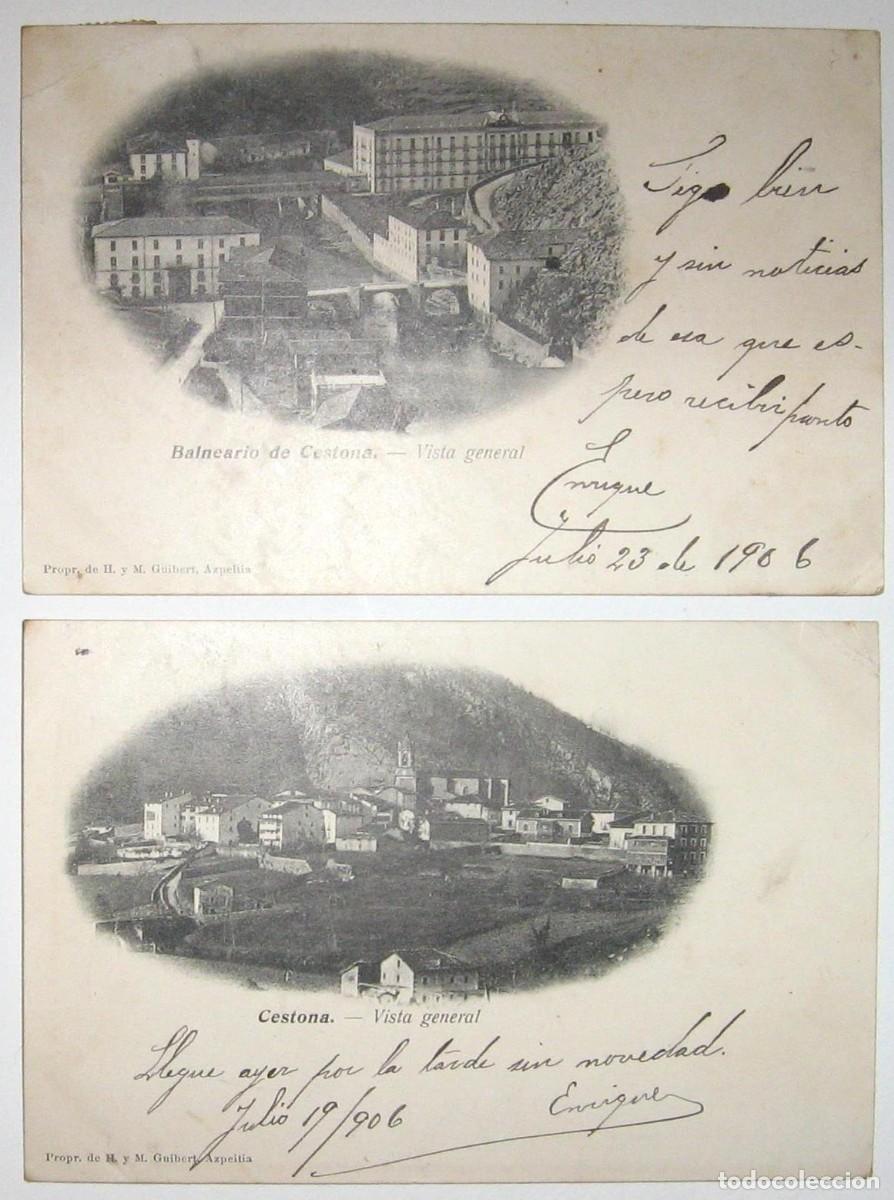 Sigo bien
y sin noticias
de esa que es-
pero recibir pronto
Enrique
Julio 23 de 1906
Balneario de Cestona. — Vista general
Propr. de H. y M. Guibert, Azpeitia
Cestona. — Vista general
Llegue ayer por la tarde sin novedad.
Julio 19/906 Enrique
Propr. de H. y M. Guibert, Azpeitia
todocoleccion